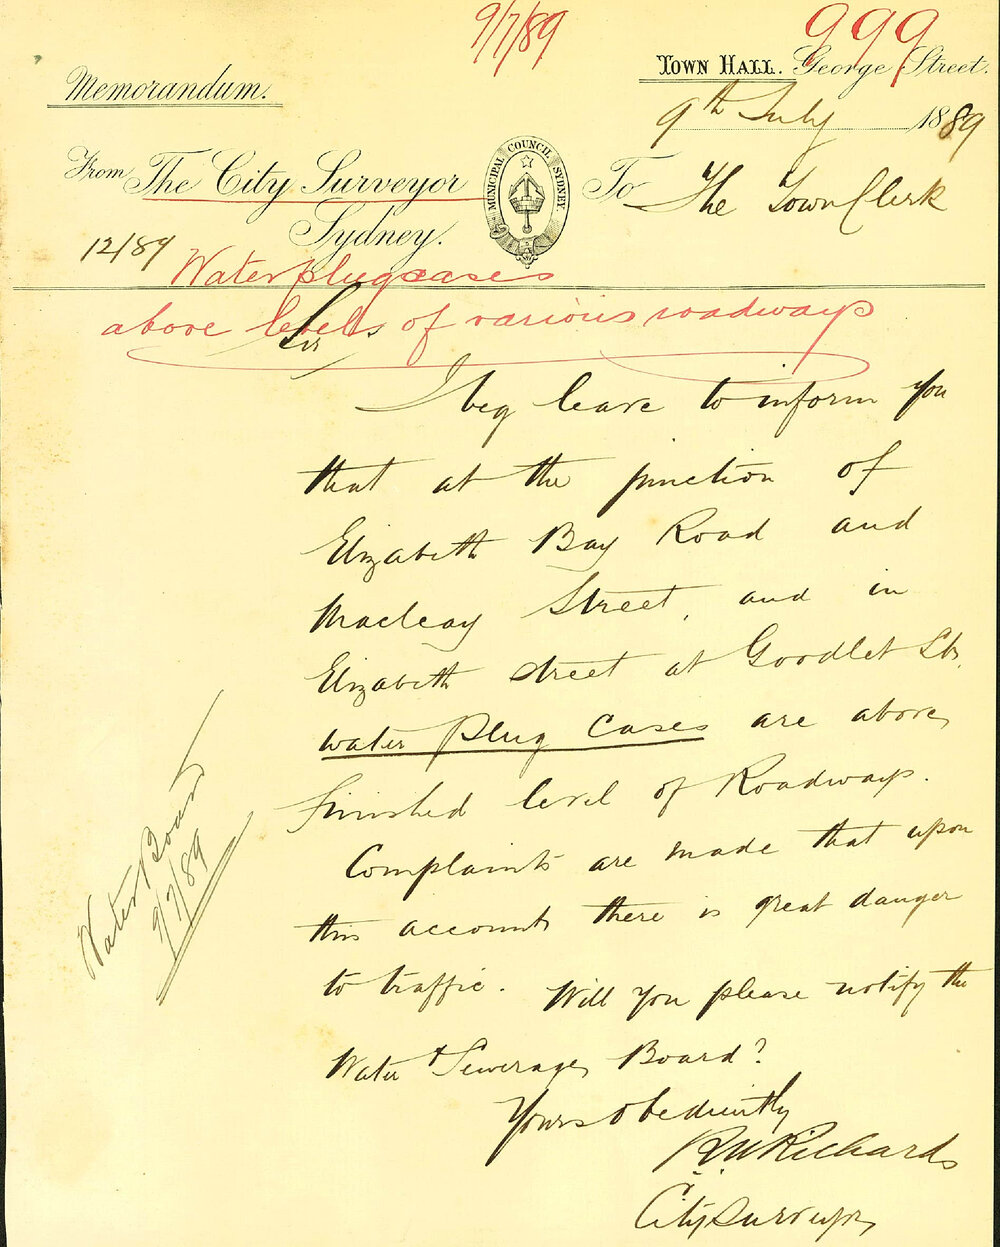 9/7/89
999
Memorandum.
TOWN HALL. George Street.
9th July 1889
From The City Surveyor
Sydney.
MUNICIPAL COUNCIL SYDNEY.
To The Town Clerk
12/89
Water plug cases
above levels of various roadways
Sir
I beg leave to inform you
that at the junction of
Elizabeth Bay Road and
Macleay Street, and in
Elizabeth street at Goodlet St.
water plug cases are above
finished level of Roadways.
Complaints are made that upon
this account there is great danger
to traffic. Will you please notify the
Water & Sewerage Board?
Yours obediently
R W Richards
City Surveyor
Water Board
9/7/89